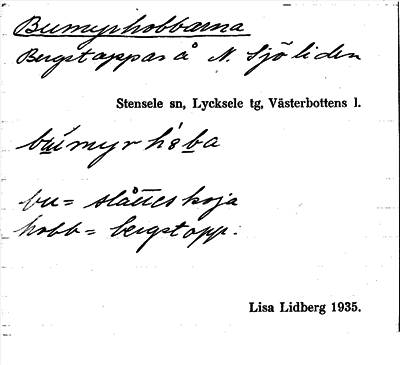 Bumyrhobbarna
Bergstoppar å N. Sjöliden
Stensele sn, Lycksele tg, Västerbottens l.
bu= slåtteskoja
hobb= bergstopp.
Lisa Lidberg 1935.